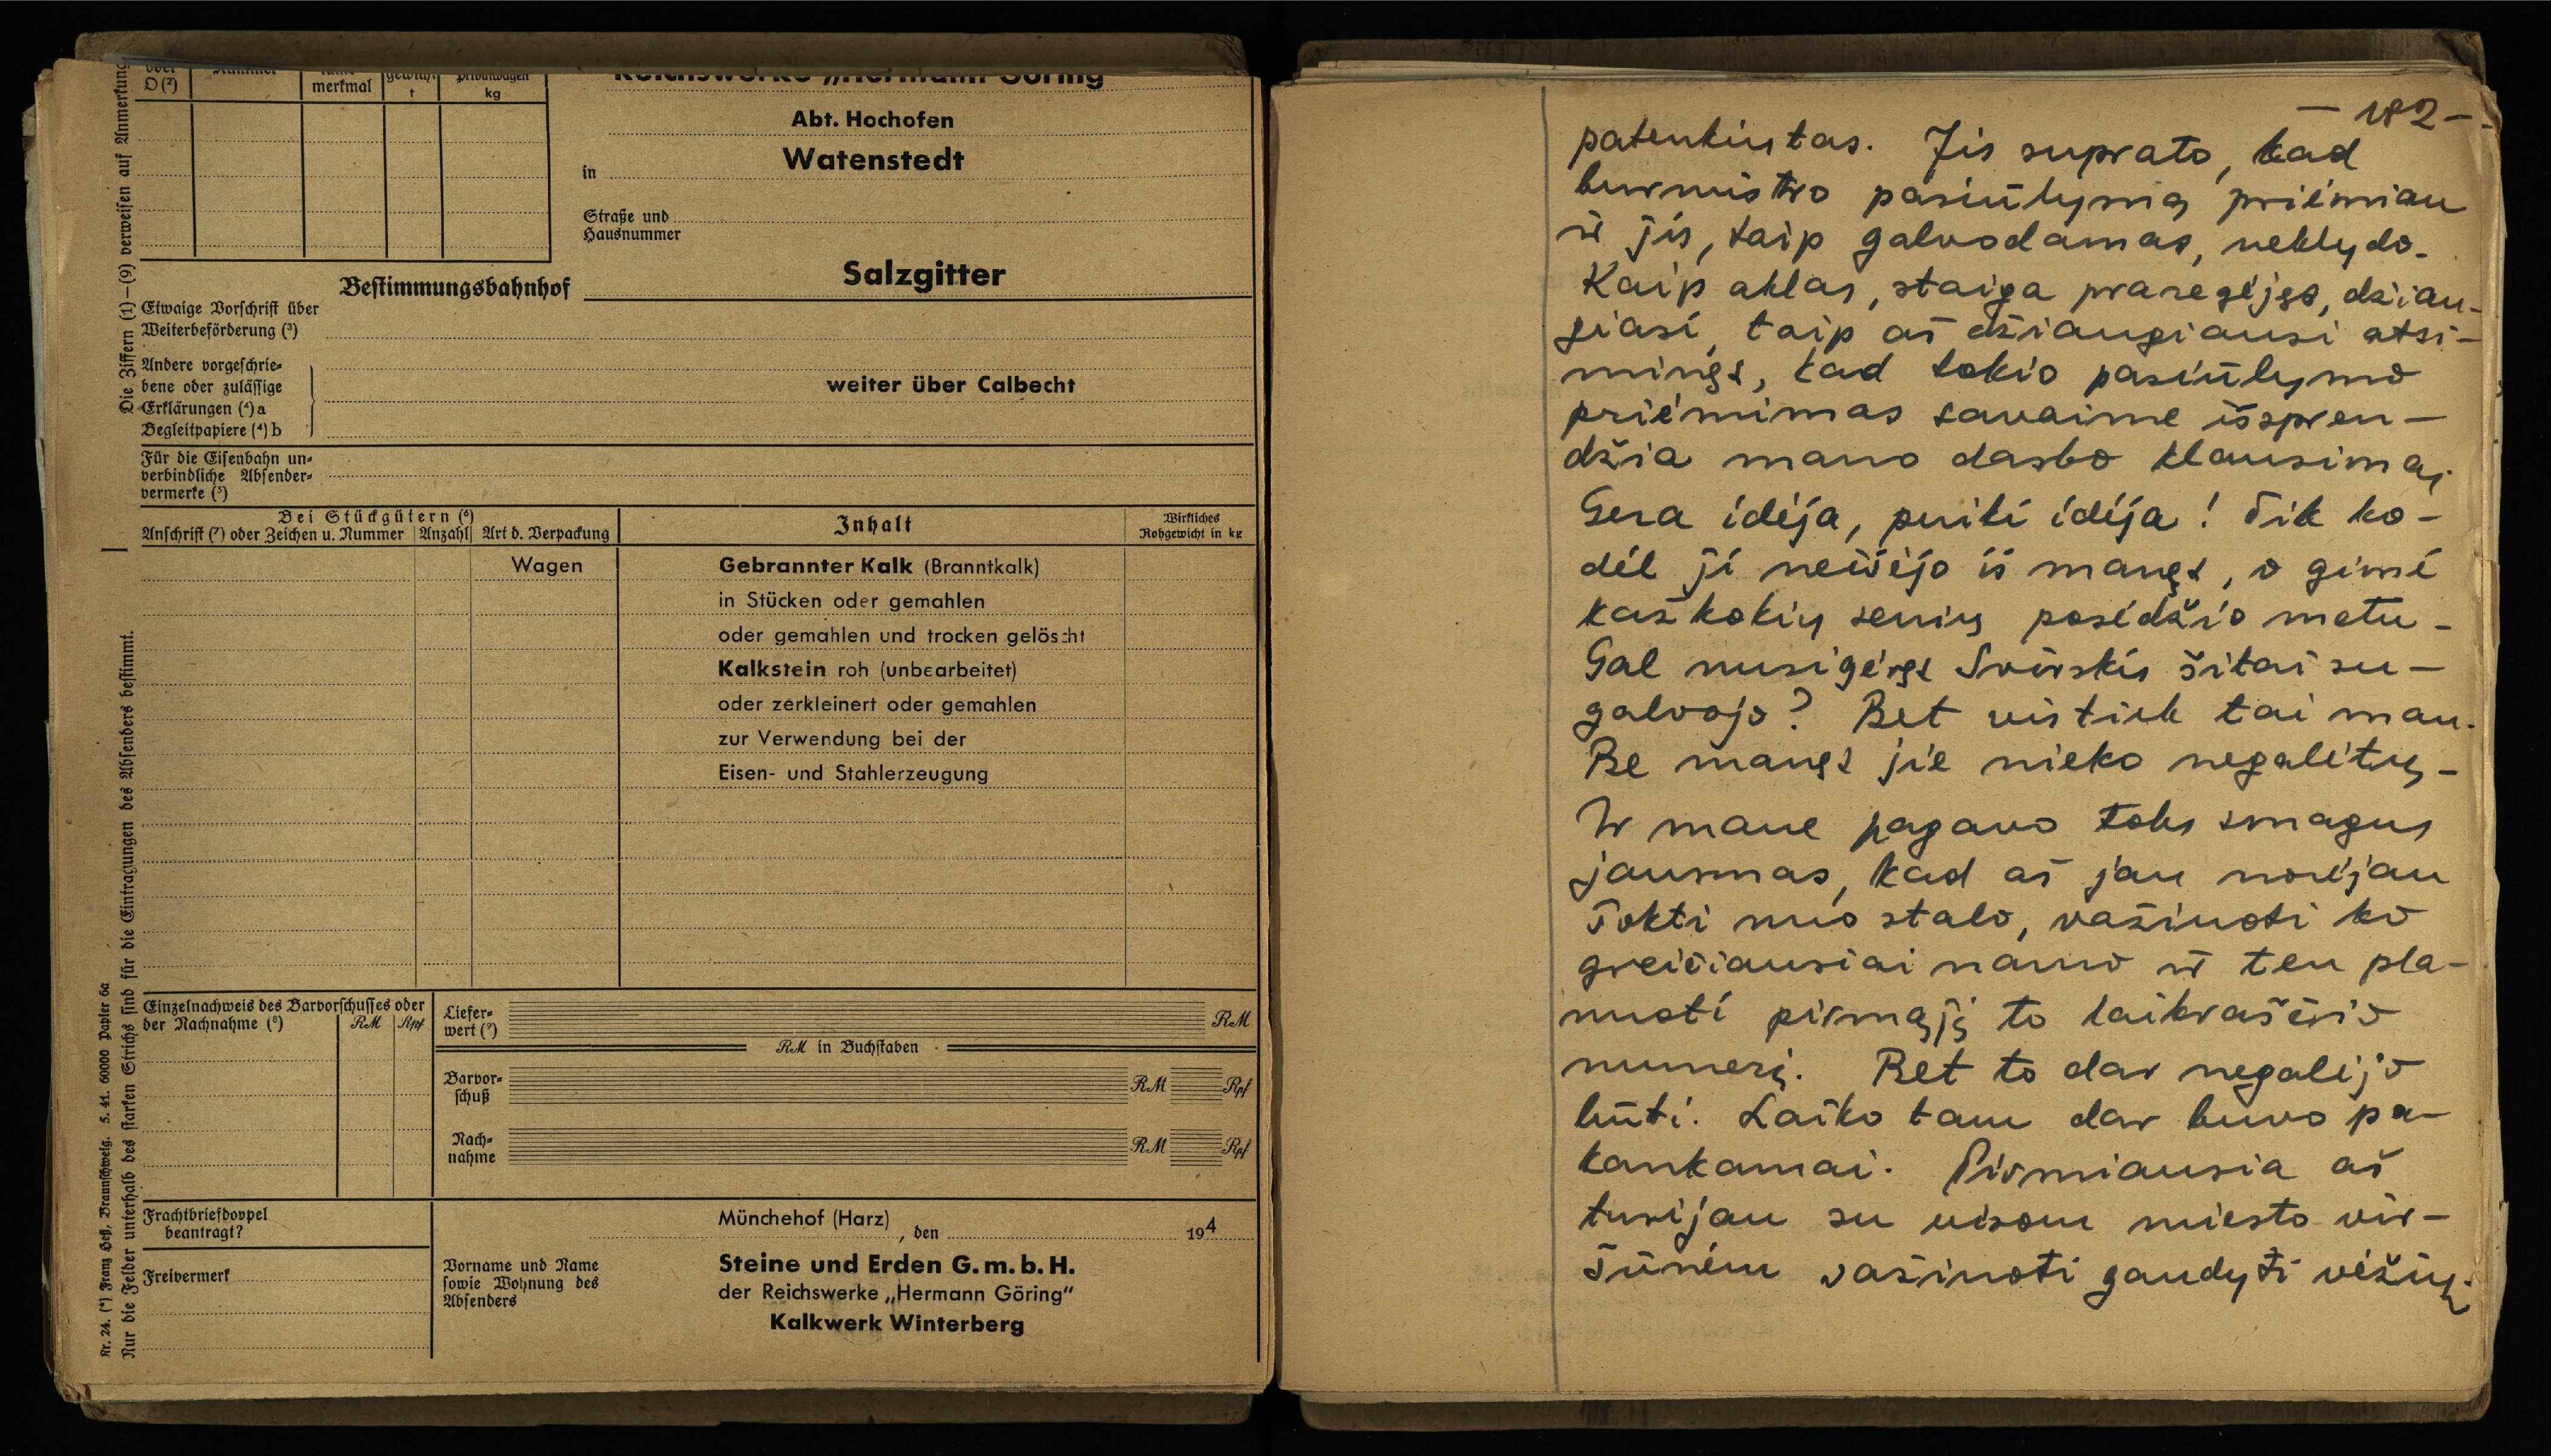 oder
D (²)
Nummer
merkmal
gewicht
t
Privatwagen
kg
Reichswerke „Hermann Göring
Abt. Hochofen
in Watenstedt
Straße und
Hausnummer
Bestimmungsbahnhof Salzgitter
Etwaige Vorschrift über
Weiterbeförderung (³)
Andere vorgeschrie-
bene oder zulässige
Erklärungen (⁴) a
Begleitpapiere (⁴) b
weiter über Calbecht
Für die Eisenbahn un-
verbindliche Absender-
vermerke (⁵)
Bei Stückgütern (⁶)
Anschrift (⁷) oder Zeichen u. Nummer Anzahl Art d. Verpackung
Inhalt
Wirkliches
Rohgewicht in kg
Wagen
Gebrannter Kalk (Branntkalk)
in Stücken oder gemahlen
oder gemahlen und trocken gelöscht
Kalkstein roh (unbearbeitet)
oder zerkleinert oder gemahlen
zur Verwendung bei der
Eisen- und Stahlerzeugung
Einzelnachweis des Barvorschusses oder
der Nachnahme (⁸) RM Rpf
Liefer-
wert (⁹) RM
RM in Buchstaben
Barvor-
schuß RM Rpf
Nach-
nahme RM Rpf
Frachtbriefdoppel
beantragt?
Freivermerk
Münchehof (Harz), den 194
Vorname und Name
sowie Wohnung des
Absenders
Steine und Erden G.m.b.H.
der Reichswerke „Hermann Göring"
Kalkwerk Winterberg
Die Ziffern (1)—(9) verweisen auf Anmerkung
Nur die Felder unterhalb des starken Strichs sind für die Eintragungen des Absenders bestimmt.
Nr. 24. (*) Franz Heß, Braunschweig. 5. 41. 60000 Papier 6a
— 182 —
patenkintas. Jis suprato, kad
burmistro pasiūlymą priėmiau
ir jis, taip galvodamas, neklydo.
Kaip aklas, staiga praregėjęs, džiau-
giasi, taip aš džiaugiausi atsi-
minęs, kad tokio pasiūlymo
priėmimas savaime išspren-
džia mano darbo klausimą.
Gera idėja, puiki idėja! Tik ko-
dėl ji neišėjo iš manęs, o gimė
kažkokių senių posėdžio metu.
Gal nusigėręs Svirskis šitai su-
galvojo? Bet vistiek tai man.
Be manęs jie nieko negalėtų.
Ir mane pagavo toks smagus
jausmas, kad aš jau norėjau
šokti nuo stalo, važiuoti ko
greičiausiai namo ir ten pla-
nuoti pirmąjį to laikraščio
numerį. Bet to dar negalėjo
būti. Laiko tam dar buvo pa-
kankamai. Pirmiausia aš
turėjau su visom miesto vir-
šūnėm važiuoti gaudyti vėžių.